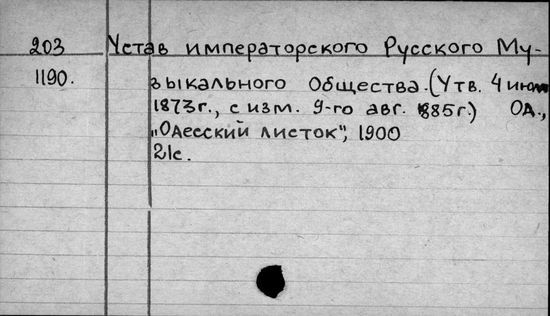 203 Устав императорского Русского Му-
1190. зыкального Общества. (Утв. 4 июл
1873г., с изм. 9-го авг. 1885г.) Од.,
„Одесский листок", 1900
21с.